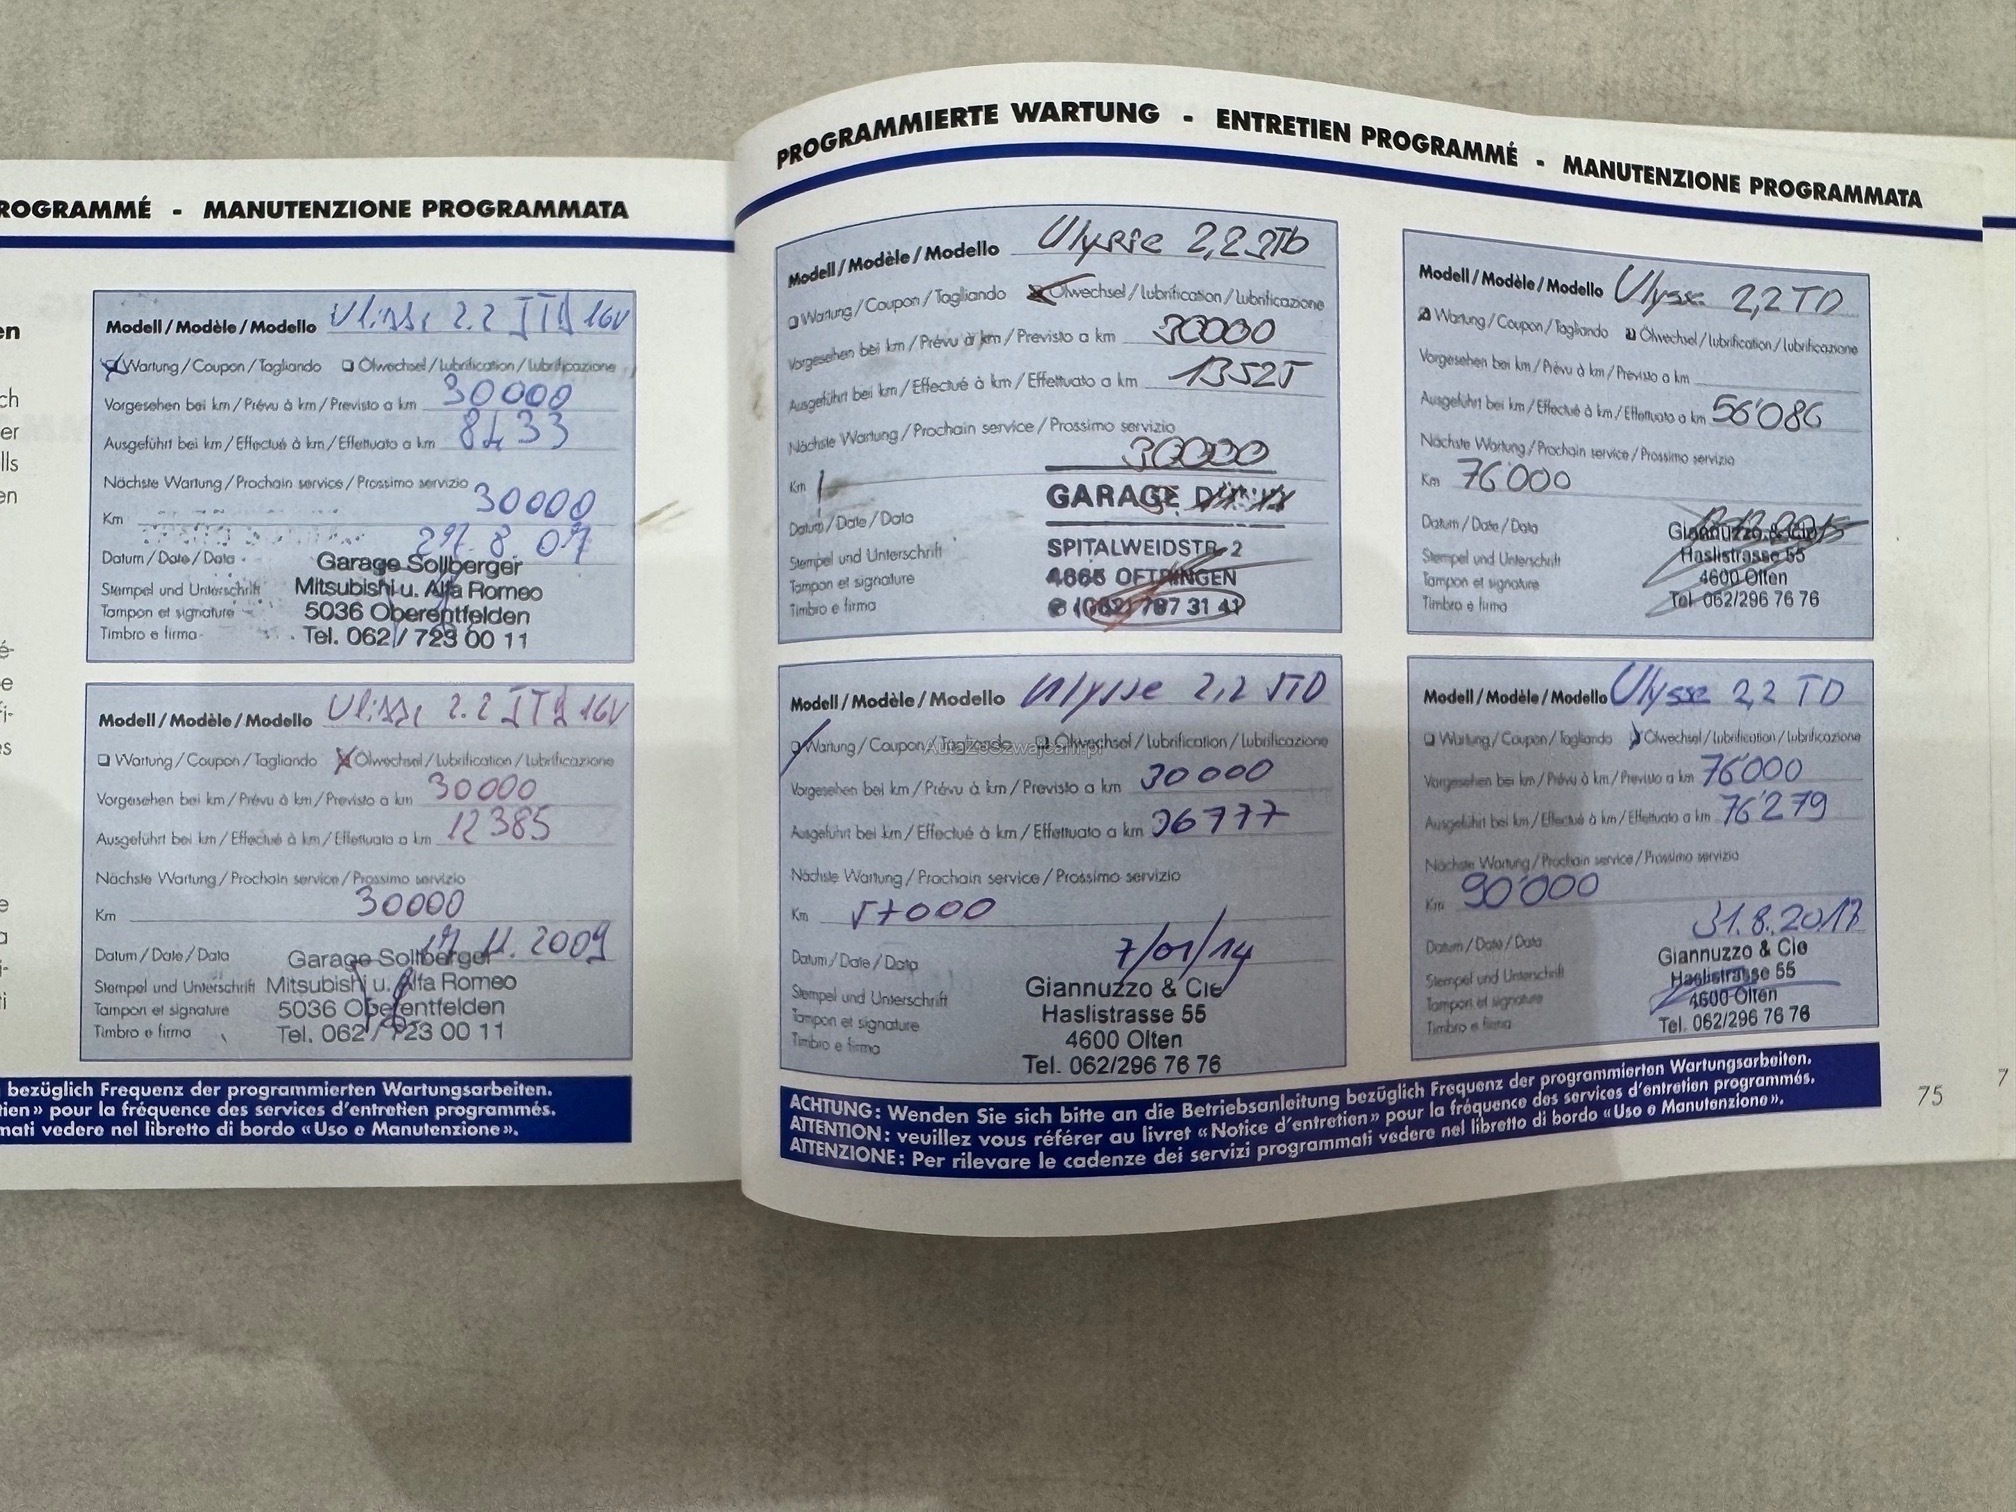 ROGRAMMÉ - MANUTENZIONE PROGRAMMATA
en
ch
er
lls
en
é-
e
fi-
es
e
a
i-
ti
Modell/Modèle/Modello Ulisse 2.2 JTD 16V
Wartung/Coupon/Tagliando Ölwechsel/Lubrification/Lubrificazione
Vorgesehen bei km/Prévu à km/Previsto a km 30000
Ausgeführt bei km/Effectué à km/Effettuato a km 8433
Nächste Wartung/Prochain service/Prossimo servizio
Km 30000
Datum/Date/Data 27.8.07
Stempel und Unterschrift
Tampon et signature
Timbro e firma
Garage Sollberger
Mitsubishi u. Alfa Romeo
5036 Oberentfelden
Tel. 062 / 723 00 11
Modell/Modèle/Modello Ulisse 2.2 JTD 16V
Wartung/Coupon/Tagliando Ölwechsel/Lubrification/Lubrificazione
Vorgesehen bei km/Prévu à km/Previsto a km 30000
Ausgeführt bei km/Effectué à km/Effettuato a km 12385
Nächste Wartung/Prochain service/Prossimo servizio
Km 30000
Datum/Date/Data 11.2009
Stempel und Unterschrift
Tampon et signature
Timbro e firma
Garage Sollberger
Mitsubishi u. Alfa Romeo
5036 Oberentfelden
Tel. 062 / 723 00 11
bezüglich Frequenz der programmierten Wartungsarbeiten.
tien» pour la fréquence des services d'entretien programmés.
mati vedere nel libretto di bordo «Uso e Manutenzione».
PROGRAMMIERTE WARTUNG - ENTRETIEN PROGRAMMÉ - MANUTENZIONE PROGRAMMATA
Modell/Modèle/Modello Ulysse 2,2 JTD
Wartung/Coupon/Tagliando Ölwechsel/Lubrification/Lubrificazione
Vorgesehen bei km/Prévu à km/Previsto a km 30000
Ausgeführt bei km/Effectué à km/Effettuato a km 13525
Nächste Wartung/Prochain service/Prossimo servizio
Km 30000
Datum/Date/Data
Stempel und Unterschrift
Tampon et signature
Timbro e firma
GARAGE
SPITALWEIDSTR. 2
4665 OFTRINGEN
(062) 797 31 41
Modell/Modèle/Modello Ulysse 2,2 TD
Wartung/Coupon/Tagliando Ölwechsel/Lubrification/Lubrificazione
Vorgesehen bei km/Prévu à km/Previsto a km
Ausgeführt bei km/Effectué à km/Effettuato a km 56'086
Nächste Wartung/Prochain service/Prossimo servizio
Km 76'000
Datum/Date/Data
Stempel und Unterschrift
Tampon et signature
Timbro e firma
Giannuzzo & Cie
Haslistrasse 55
4600 Olten
Tel. 062/296 76 76
Modell/Modèle/Modello Ulysse 2,2 JTD
Wartung/Coupon/Tagliando Ölwechsel/Lubrification/Lubrificazione
AutaZeSzwajcarii.pl
Vorgesehen bei km/Prévu à km/Previsto a km 30000
Ausgeführt bei km/Effectué à km/Effettuato a km 36777
Nächste Wartung/Prochain service/Prossimo servizio
Km 57000
Datum/Date/Data 7/01/14
Stempel und Unterschrift
Tampon et signature
Timbro e firma
Giannuzzo & Cie
Haslistrasse 55
4600 Olten
Tel. 062/296 76 76
Modell/Modèle/Modello Ulysse 2,2 TD
Wartung/Coupon/Tagliando Ölwechsel/Lubrification/Lubrificazione
Vorgesehen bei km/Prévu à km/Previsto a km 76'000
Ausgeführt bei km/Effectué à km/Effettuato a km 76'279
Nächste Wartung/Prochain service/Prossimo servizio
Km 90'000
Datum/Date/Data 31.8.2017
Stempel und Unterschrift
Tampon et signature
Timbro e firma
Giannuzzo & Cie
Haslistrasse 55
4600 Olten
Tel. 062/296 76 76
ACHTUNG: Wenden Sie sich bitte an die Betriebsanleitung bezüglich Frequenz der programmierten Wartungsarbeiten.
ATTENTION: veuillez vous référer au livret «Notice d'entretien» pour la fréquence des services d'entretien programmés.
ATTENZIONE: Per rilevare le cadenze dei servizi programmati vedere nel libretto di bordo «Uso e Manutenzione».
75
7